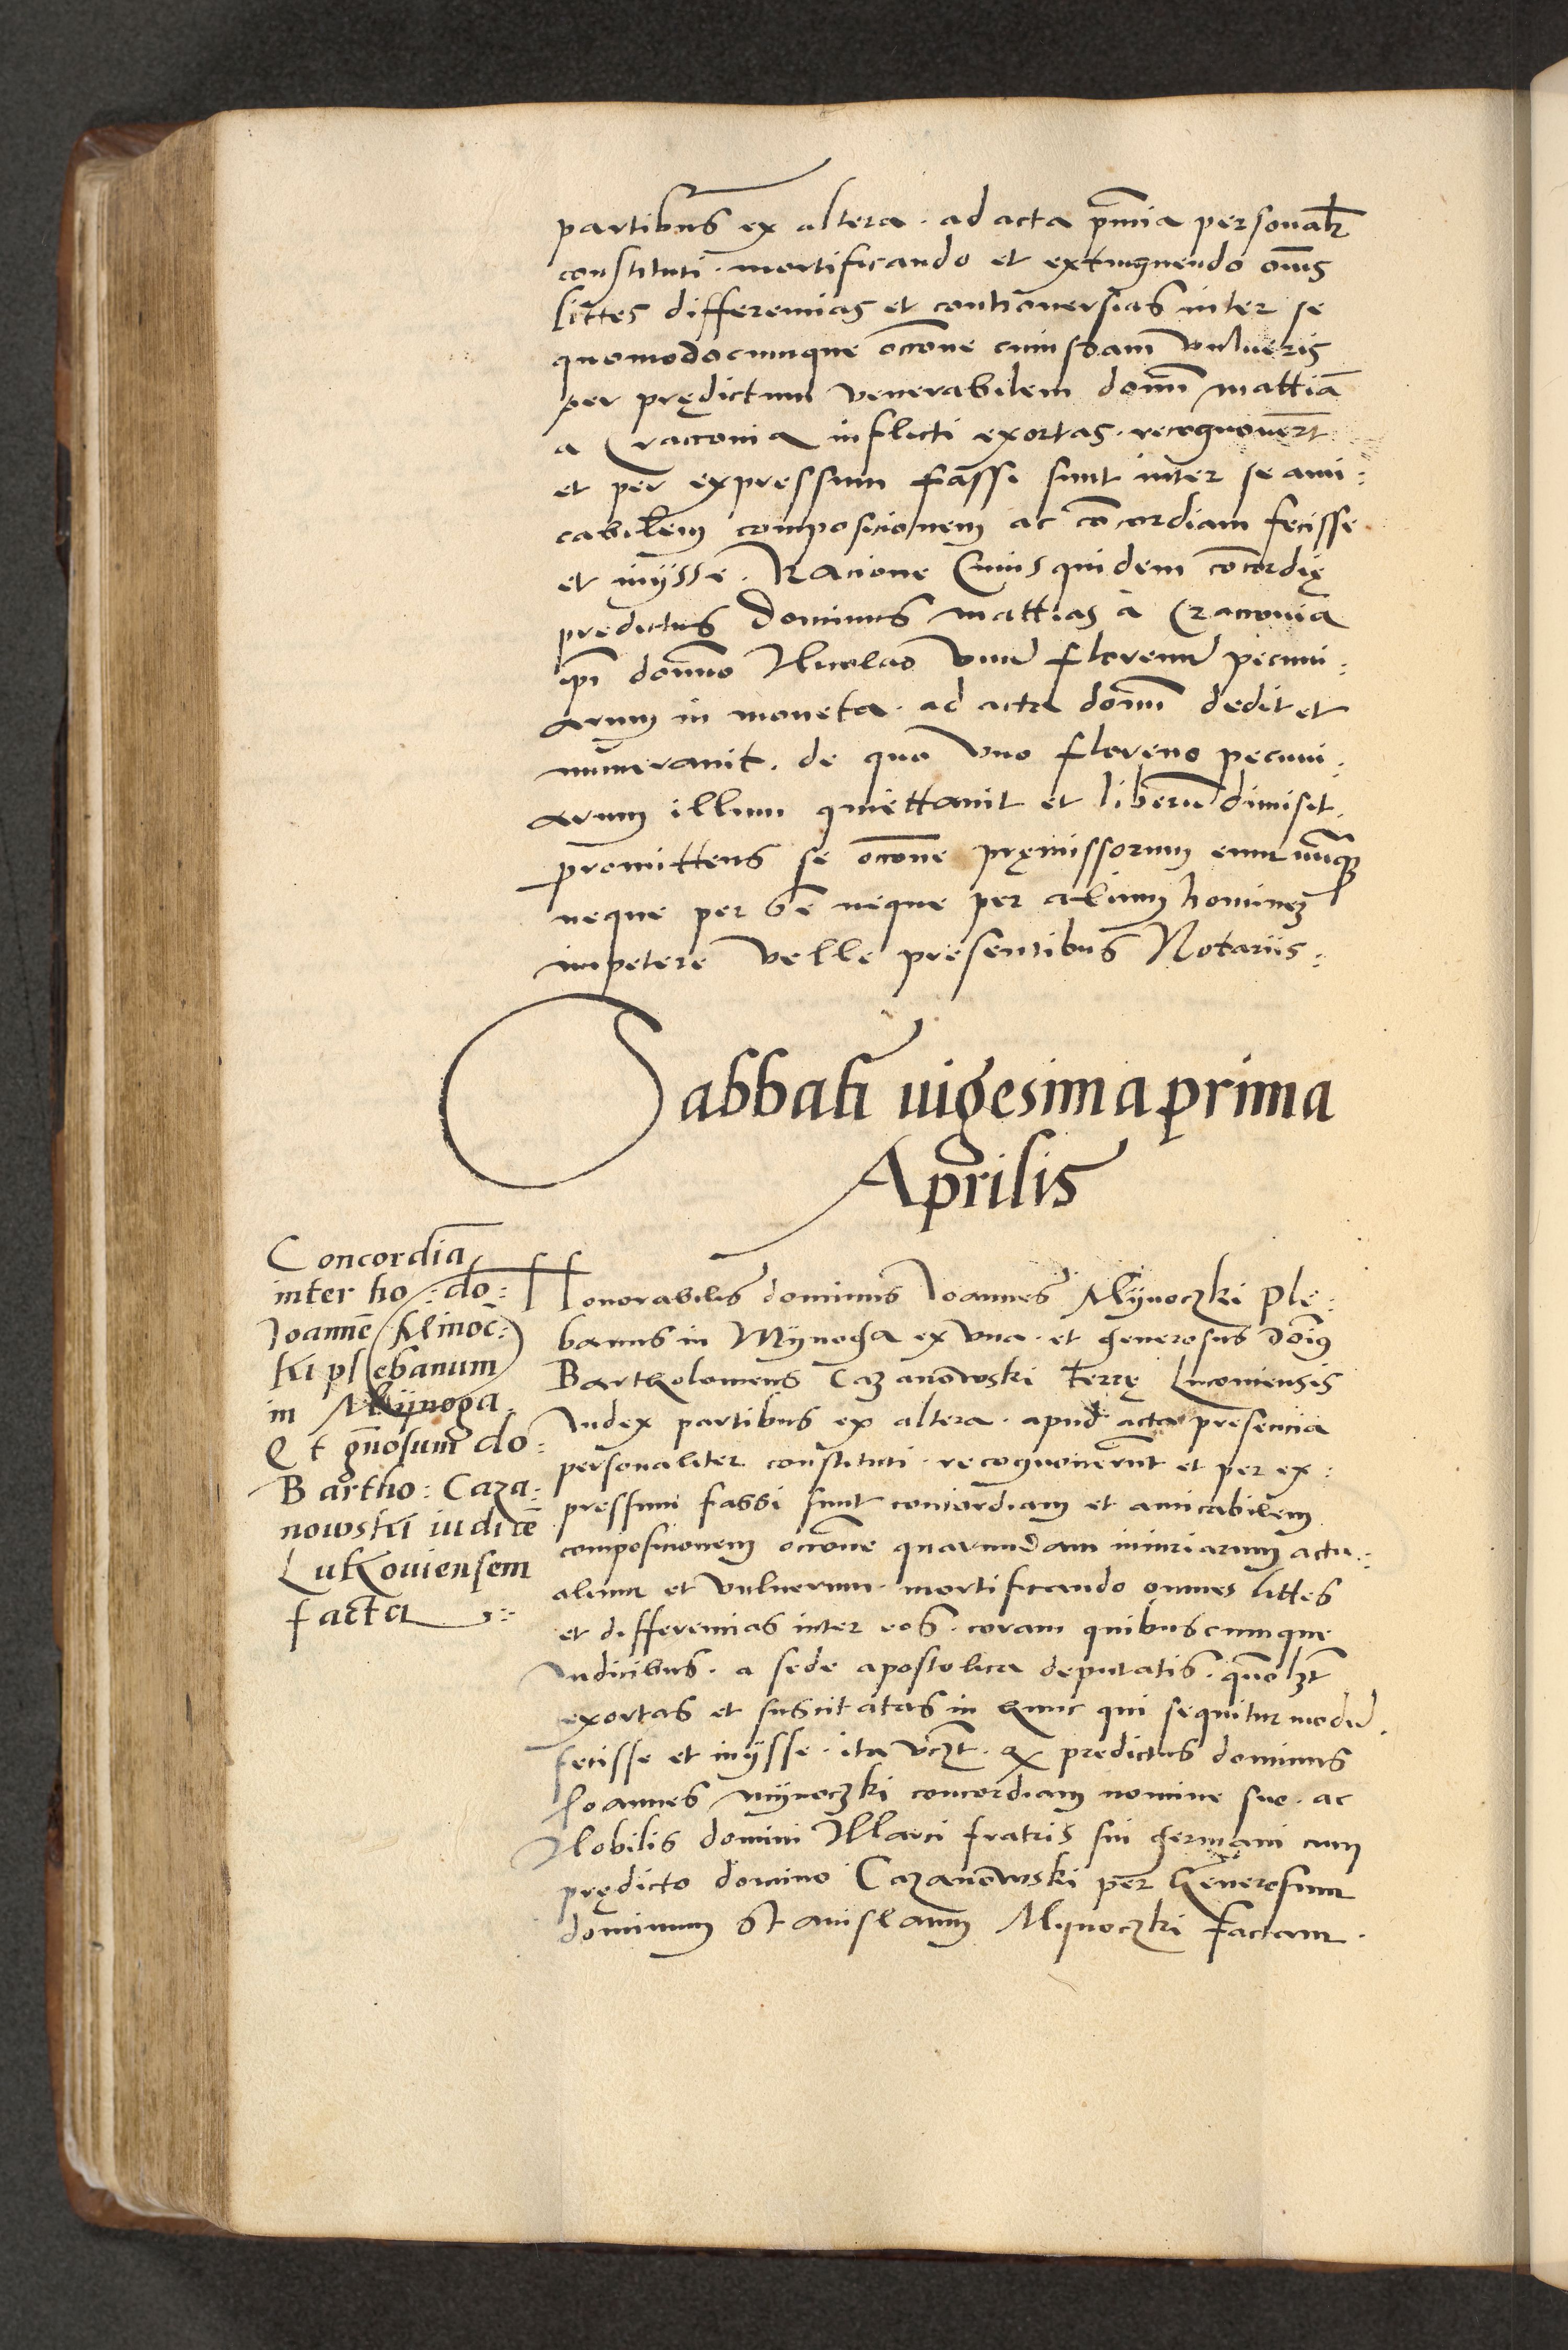 partibus ex altera · ad acta pñtia personalr
constituti · mortificando et extinguendo omēs
littes differencias et controversias inter se
quomodocunque occōne cuiusdam vulneris
per prędictum venerabilem domī mattiā
a Cracovia inflicti exortas · recognoverūt
et per expressum fassi sunt inter se ami:
cabilem composicionem ac cōcordiam fecisse
et inÿsse · Racione Cuiusquidem cōcordię
predictus Dominus mattias à Cracovia
ipī domīno Nicolao unū florenū pecuni:
arum in moneta · ad acta domī dedit et
numeravit · de quo vno floreno pecuni:
arum illum quiettavit et liberū dimisit ·
promittens se occōne pręmissorum eum nunqȝ
neque per se neque per alium hominem
impetere velle presentibus Notariis :
Sabbati vigesima prima
Aprilis
Concordia
inter ho: do:
Joannē Minoc:
ki plebanum
in Mÿnoga
Et gn̄osum do:
Bartho: Caza:
nowski iudicē
Lukoviensem
facta
Honorabilis dominus Joannes Mÿnoczki Ple:
banus in Mÿnoga ex vna · et generosus Domīus
Bartholomeus Cazanowski terrę Lucoviensis
Judex partibus ex altera · apud acta presencia
personaliter constituti · recognoverunt et per ex:
pressum fassi sunt concordiam et amicabilem
composicionem occōne quarumdam iniuriarum actu:
alium et vulnerum · mortificando omnes littes
et differencias inter eos · coram quibuscumque
Judicibus · a sede apostolica deputatis · quōlȝt
exortas et suscitatas in hunc qui sequitur modū ·
fecisse et inÿsse · ita vcȝt · qȝ predictus dominus
Joannes mÿnoczki concordiam nomine suo · ac
Nobilis domini Marci fratris sui germani cum
prędicto domino Cazanowski per Generosum
dominum Stanislaum Mÿnoczki factam ·